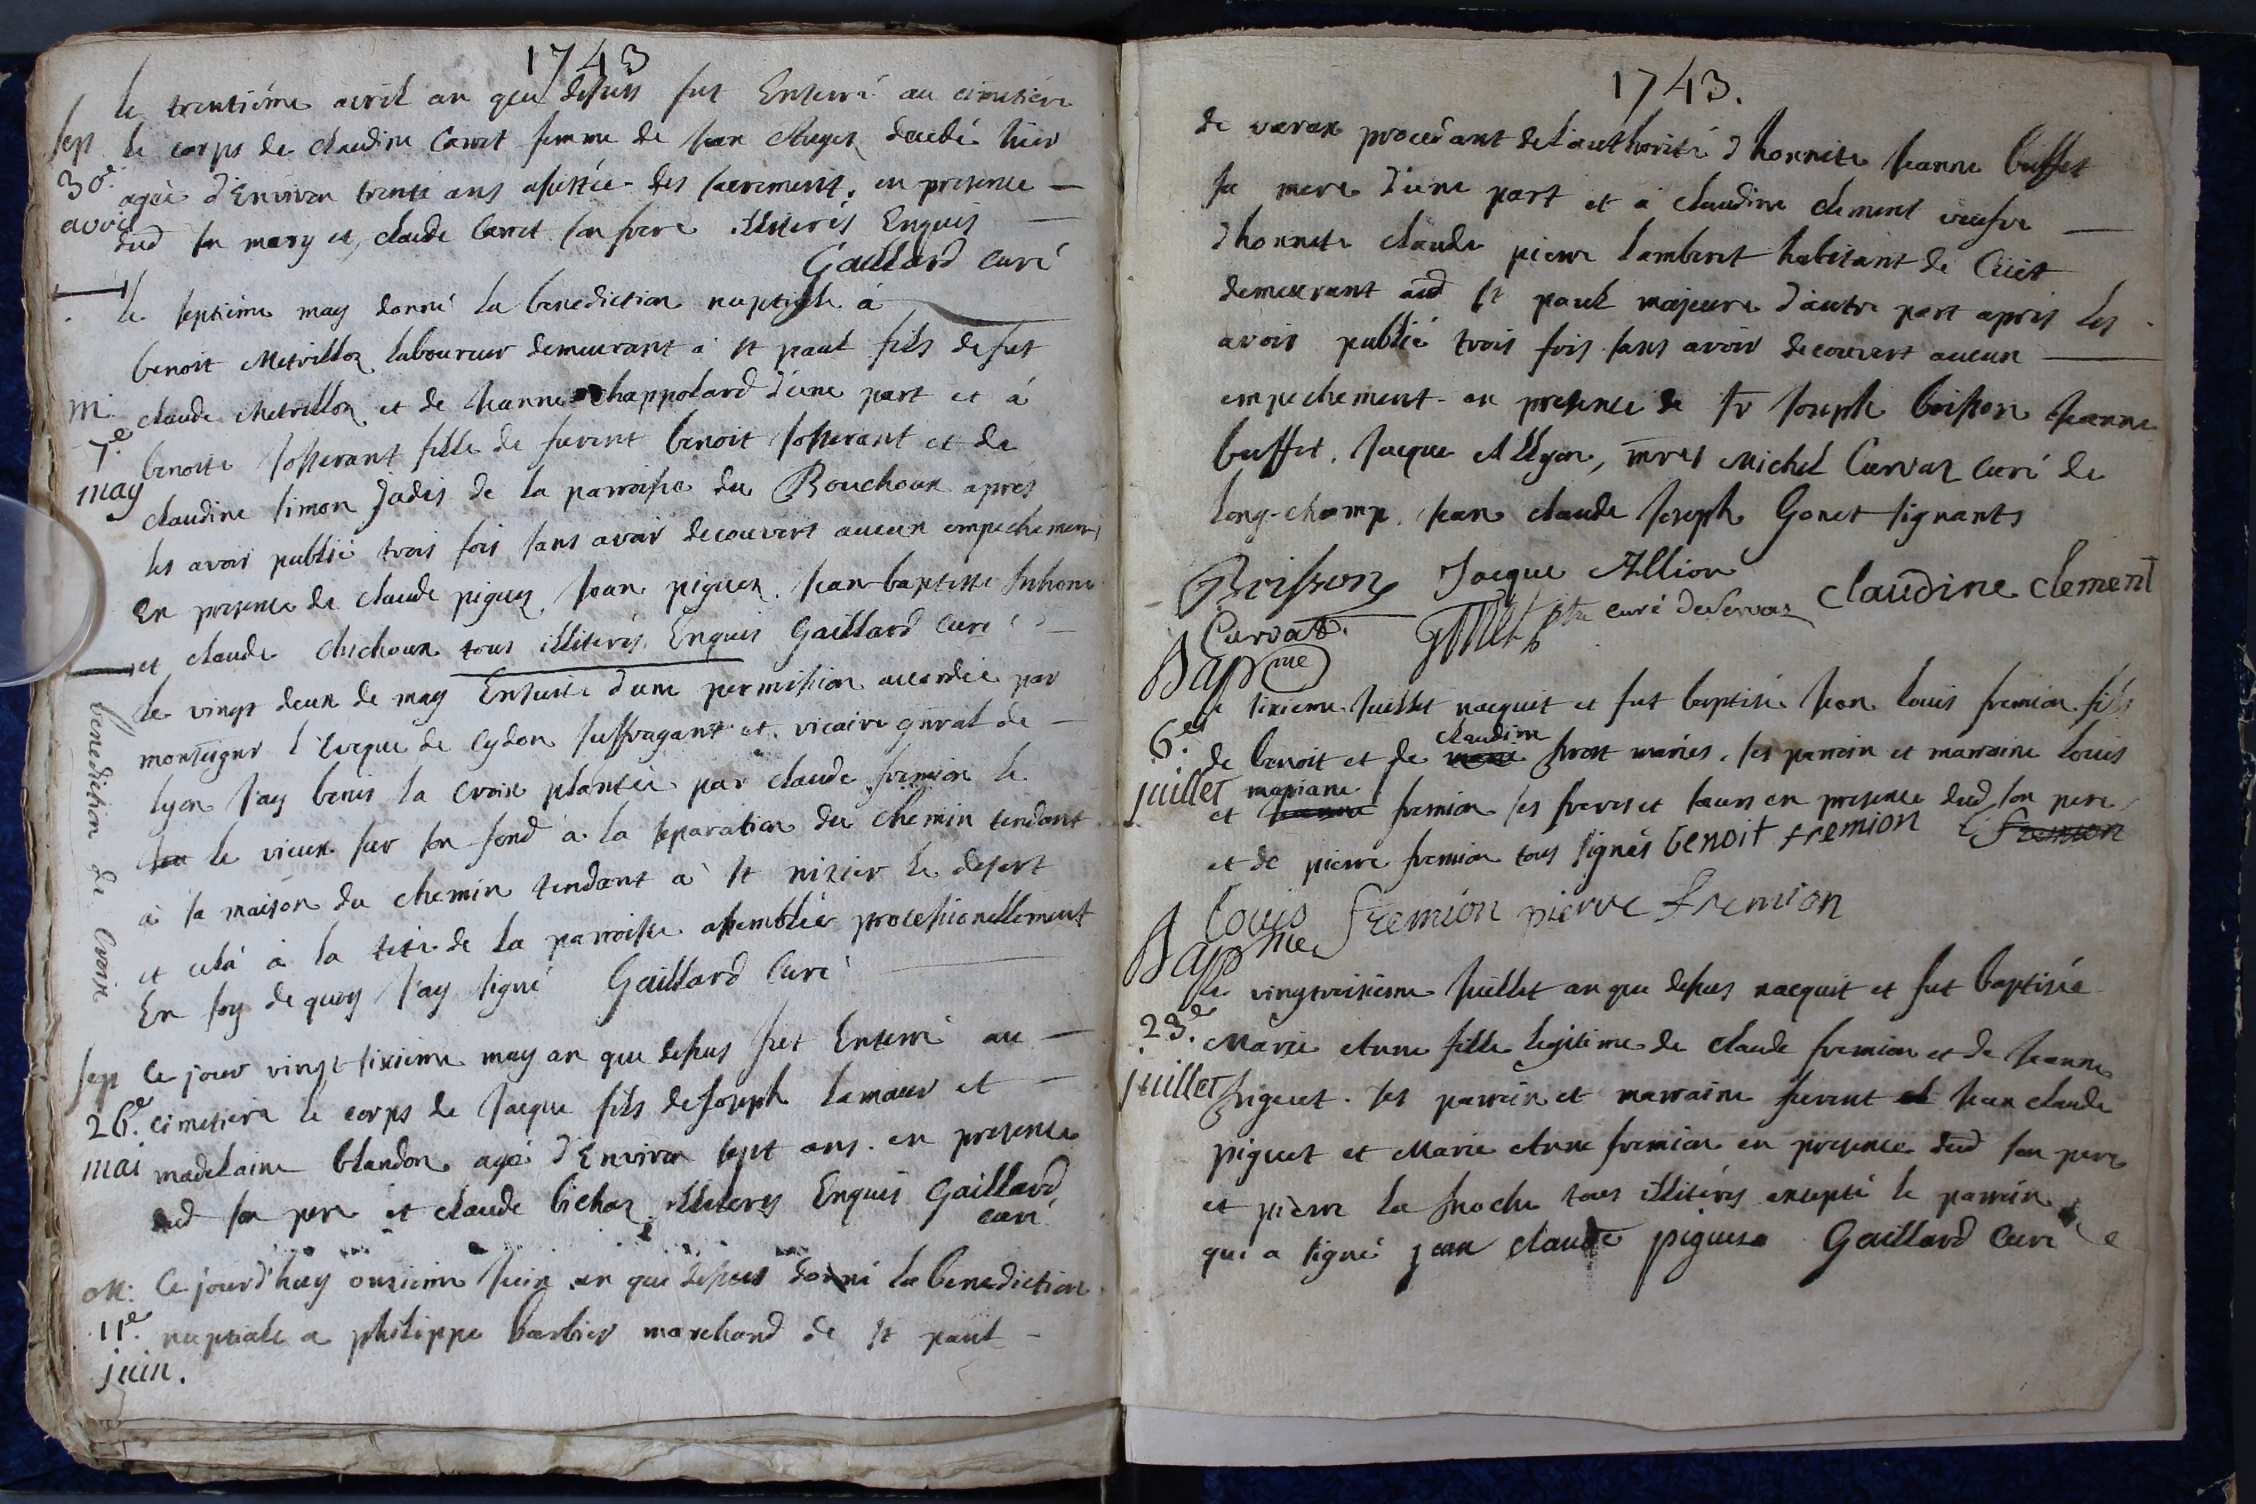 1743
le trentiéme avril an que dessus fut Enterré au cimetiere
sep le corps de claudine Carret femme de Jean Chuger decedé hier
30e. agée d'Environ trente ans assistée des sacrements, en presence
avril dud son mary et claude Carret son frere illiterés Enquis
Gaillard Curé
le septieme may donné la benediction nuptiale à
benoit Metrillot laboureur demeurant à st paul fils de fut
m. claude Metrillot et de Jeanne chappolard d'une part et à
7.e benoite Josserant fille de furent benoit Josserant et de
may claudine Simon Jadis de la parroisse du Bouchoux apres
les avoir publié trois fois sans avoir decouvert aucun empechement
En presence de claude piguet, Jean piguet, Jean-baptiste
et claude Chichoux tous illiterés Enquis Gaillard Curé
benediction de Croix
le vingt deux de may Ensuite d'une permission accordée par
monseignr l'Eveque de Cydon suffragant et vicaire gnral de
lyon J'ay benis la Croix plantée par claude fremion le
le vieux sur son fond à la separation du chemin tendant
à sa maison du chemin tendant à st nizier le desert
et cela à la tete de la parroisse assemblée processionellement
En foy de quoy J'ay signé Gaillard Curé
sep Ce jour vingt sixieme may an que dessus fut Enterré au
26e. cimetiere le corps de Jacque fils de Joseph Lamaur et
mai madelaine blandon agé d'Environ sept ans. en presence
dud son pere et claude bichat illiterés Enquis Gaillard
curé
M: Ce jourd'huy onzieme Juin an que dessus donné la benediction
11e. nuptiale a philippe barbier marchand de st paul
juin.
1743.
de varax procedant de l'authorité d'honnete Jeanne buffet
sa mere d'une part et à claudine clement veufve
d'honnete claude pierre Lamberet habitant de Cuet
demeurant aud st paul majeure d'autre part apres les
avoir publié trois fois sans avoir decouvert aucun
empechement en presence de sr Joseph boisson Jeanne
buffet, Jacque Allyon, mres Michel Curvat Curé de
Long-champ, Jean claude Joseph Gonet signants
Boisson Jacque Allion claudine clement
Curvat. Gonet ptre curé de Servas
Bapme
le sixieme Juillet nacquit et fut baptisé Jean louis fremion fils
claudine
6.e de benoit et de marie frost mariés, ses parrain et marraine louis
juillet mariane
et Jeanne fremion ses freres et soeurs en presence dud son pere
et de pierre fremion tous signés benoit fremion L fremion
louis fremion pierre fremion
Bapme
le vingtroisieme Juillet an que dessus nacquit et fut baptisée
23.e Marie Anne fille legitime de claude fremion et de Jeanne
juillet piguet. ses parrain et marraine furent Jean claude
piguet et Marie Anne fremion en presence dud son pere
et pierre la tous illiterés excepté le parrain
qui a signé jean claude piguet Gaillard Curé